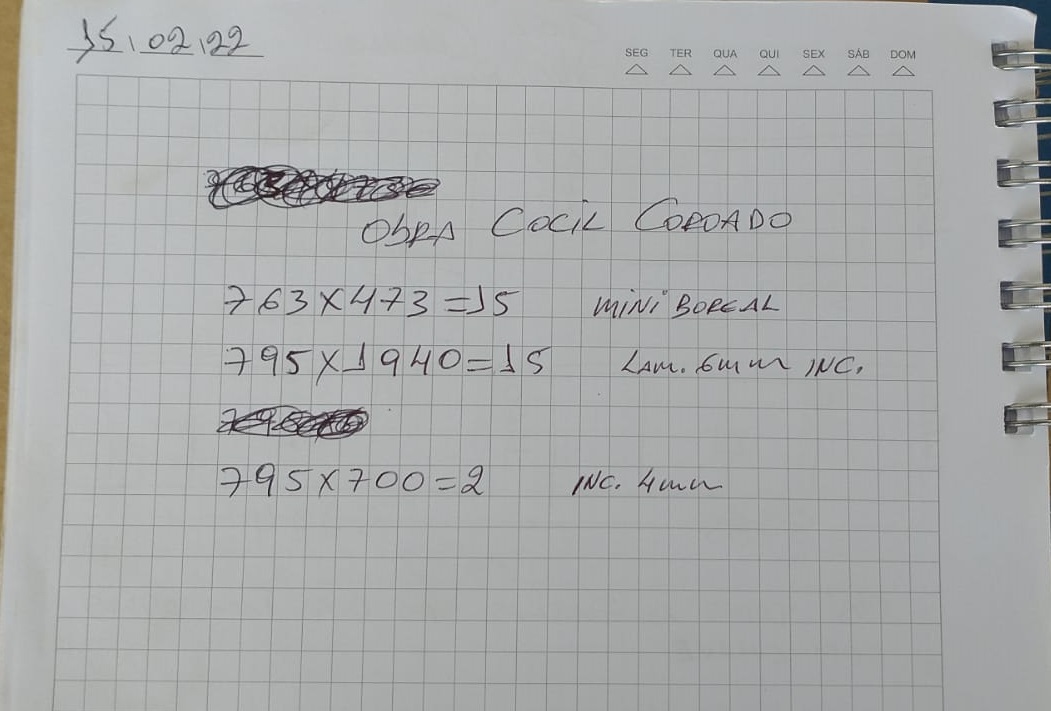 15,02,22
SEG TER QUA QUI SEX SÁB DOM
OBRA COCIL COROADO
763X473=15 MINI BOREAL
795X1940=15 LAM. 6mm INC.
795X700=2 INC. 4mm